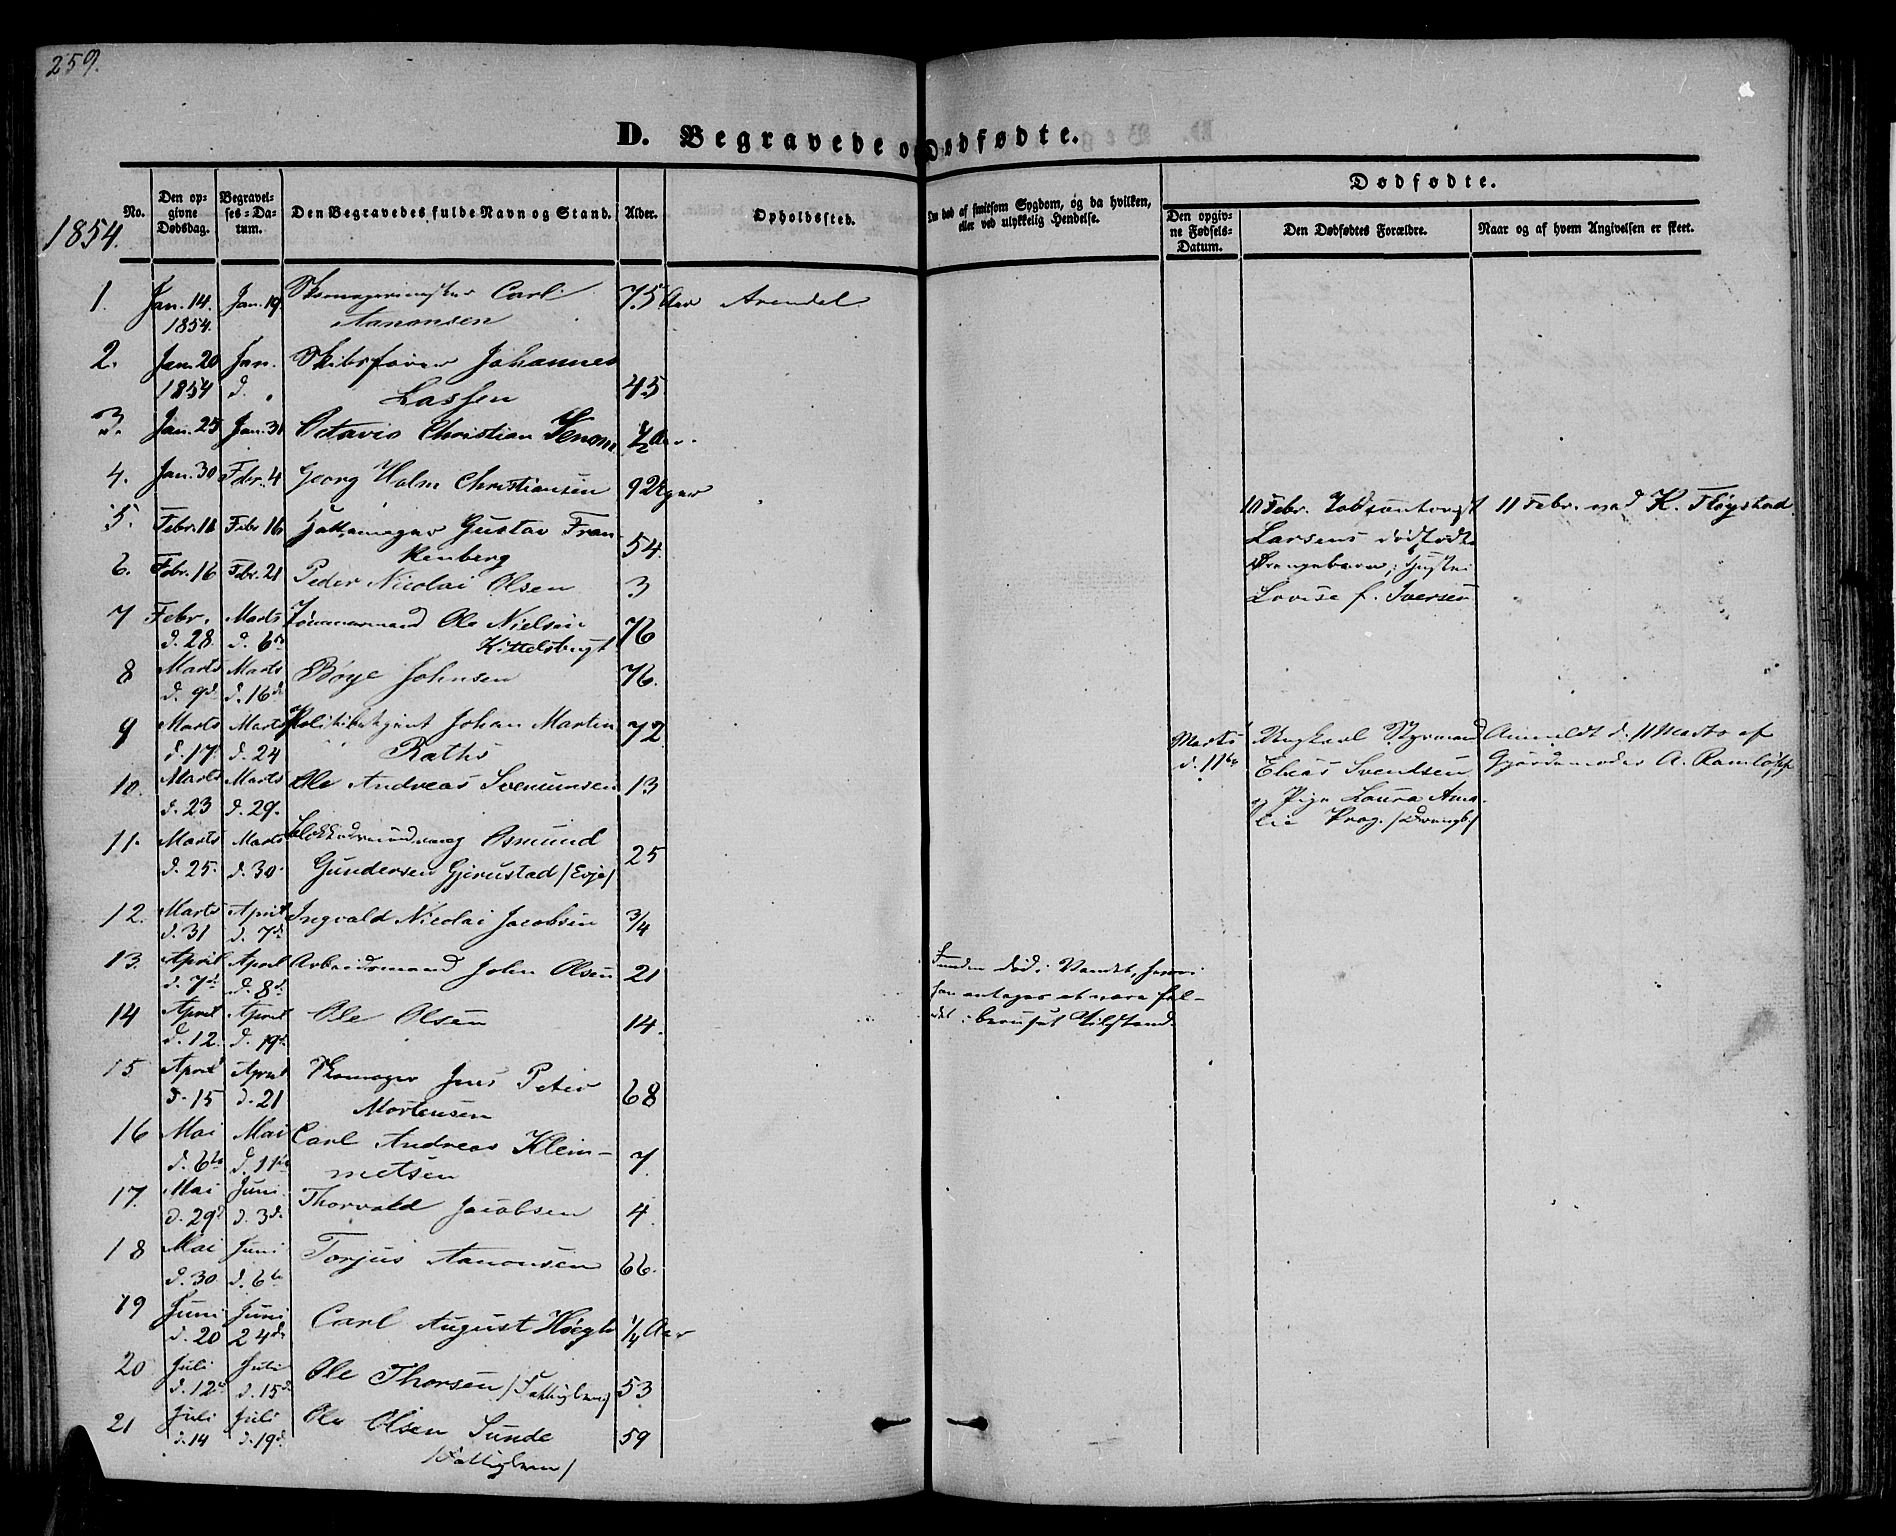 259.
D. Begravede o Dødfødte.
1854.
No.
Den opgivne Dødsdag.
Begravelses-Datum.
Den Begravedes fulde Navn og Stand.
Alder.
Opholdssted.
død af smitsom Sygdom, og da hvilken,
eller ved ulykkelig Hendelse.
Dødfødte.
Den opgivne Fødsels-Datum.
Den Dødfødtes Forældre.
Naar og af hvem Angivelsen er skeet.
1. Jan. 14. Jan. 19. Skomagermester Carl 75 Aar Arendal
1854. Aanonsen
2. Jan. 20 Jan. Skibsfører Johannes
1854 d. Lassen 45
3. Jan. 25 Jan. 31 Octavio Christian ½ Aar.
4. Jan. 30 Febr. 4 Georg Holm Christiansen 9
10 Febr. 11 Febr. ved K. Fløystad
5. Febr. 11 Febr 16 Gustav Fran-
kenberg 54.
Larsens dødfødte
6. Febr. 16 Febr. 21 Peder Nicolai Olsen 3
Drengebarn, Hustru
Lovise f. Iversen
7 Febr. Marts Tømmermand Ole Nielsen 76
d. 28. d. 6te Kittelsbugt
8 Marts Marts Børe Johnsen 76.
d. 9d. d. 16d.
9 Marts Marts Politibetjent Johan Martin 72
d. 17. d. 24 Raths
Marts Ungkarl Styrmand Anmeldt d. 11 Marts af
d. 11te Elias Svendsen Gjordemoder A.
og Pige Laura Ama-
lie Prag. /Dreng/
10. Marts Marts Ole Andreas 13
d. 23 d. 29.
11. Marts Marts Osmund 25
d. 25. d. 30. Gundersen /Evje/
12. Marts April Ingvald Nicolai Jacobsen ¾
d. 31 d. 7d.
13. April April Arbeidsmand John Olsen 21
d. 7d. d. 8d.
Funden død i Vandet, hvori
han antages at være fal-
det i beruset Tilstand.
14 April April Ole Olsen 14.
d. 12. d. 19d.
15 April April Skomager Jens Peter 68
d. 15 d. 21 Mortensen
16 Mai Mai Carl Andreas Klem- 7
d. 6te d. 11te metsen
17. Mai Juni Thorvald Jacobsen 4
d. 29d d. 3d.
18 Mai Juni Torjus Aanonsen 66.
d. 30 d. 6te
19 Juni Juni Carl August Høegh ¼ Aar
d. 20 24d.
20 Juli Juli Ole Thorsen /Fattiglem/ 53
d. 12d d. 15d.
21 Juli Juli Ole Olsen Sunde 59
d. 14 d. 19d. /Fattiglem/